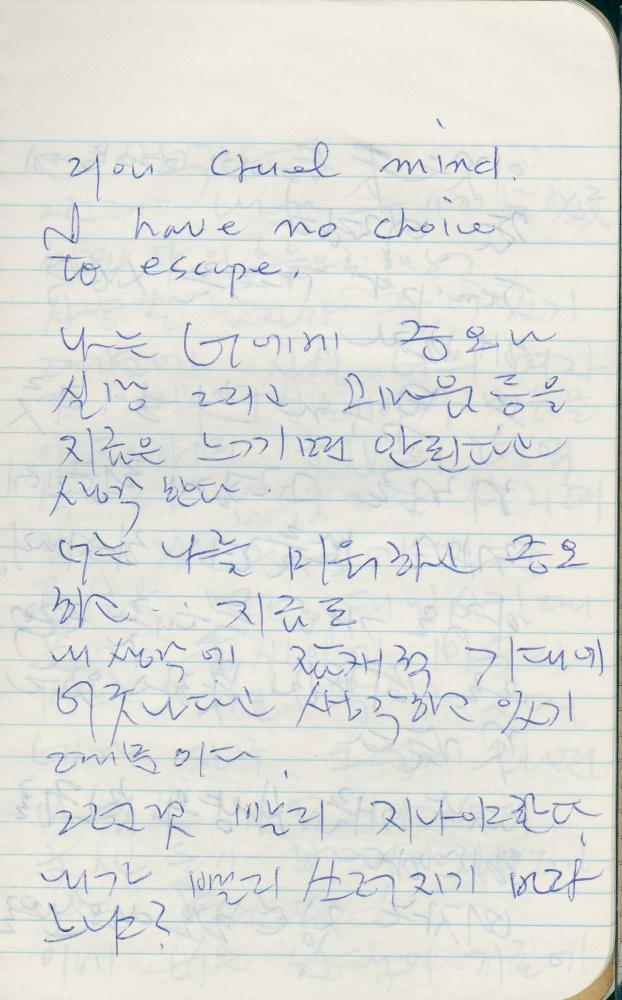 you cruel mind.
I have no choice
to escape.
나는 너에게 증오나
실망 그리고 미움등을
지금은 느끼면 안된다고
생각 한다.
너는 나를 미워하고 증오
하고.. 지금도
내 생각에 잠재적 기대에
어긋난다고 생각하고 있기
때문이다.
그런것 빨리 지나야한다.
내가 빨리 쓰러지기 바라
느냐?